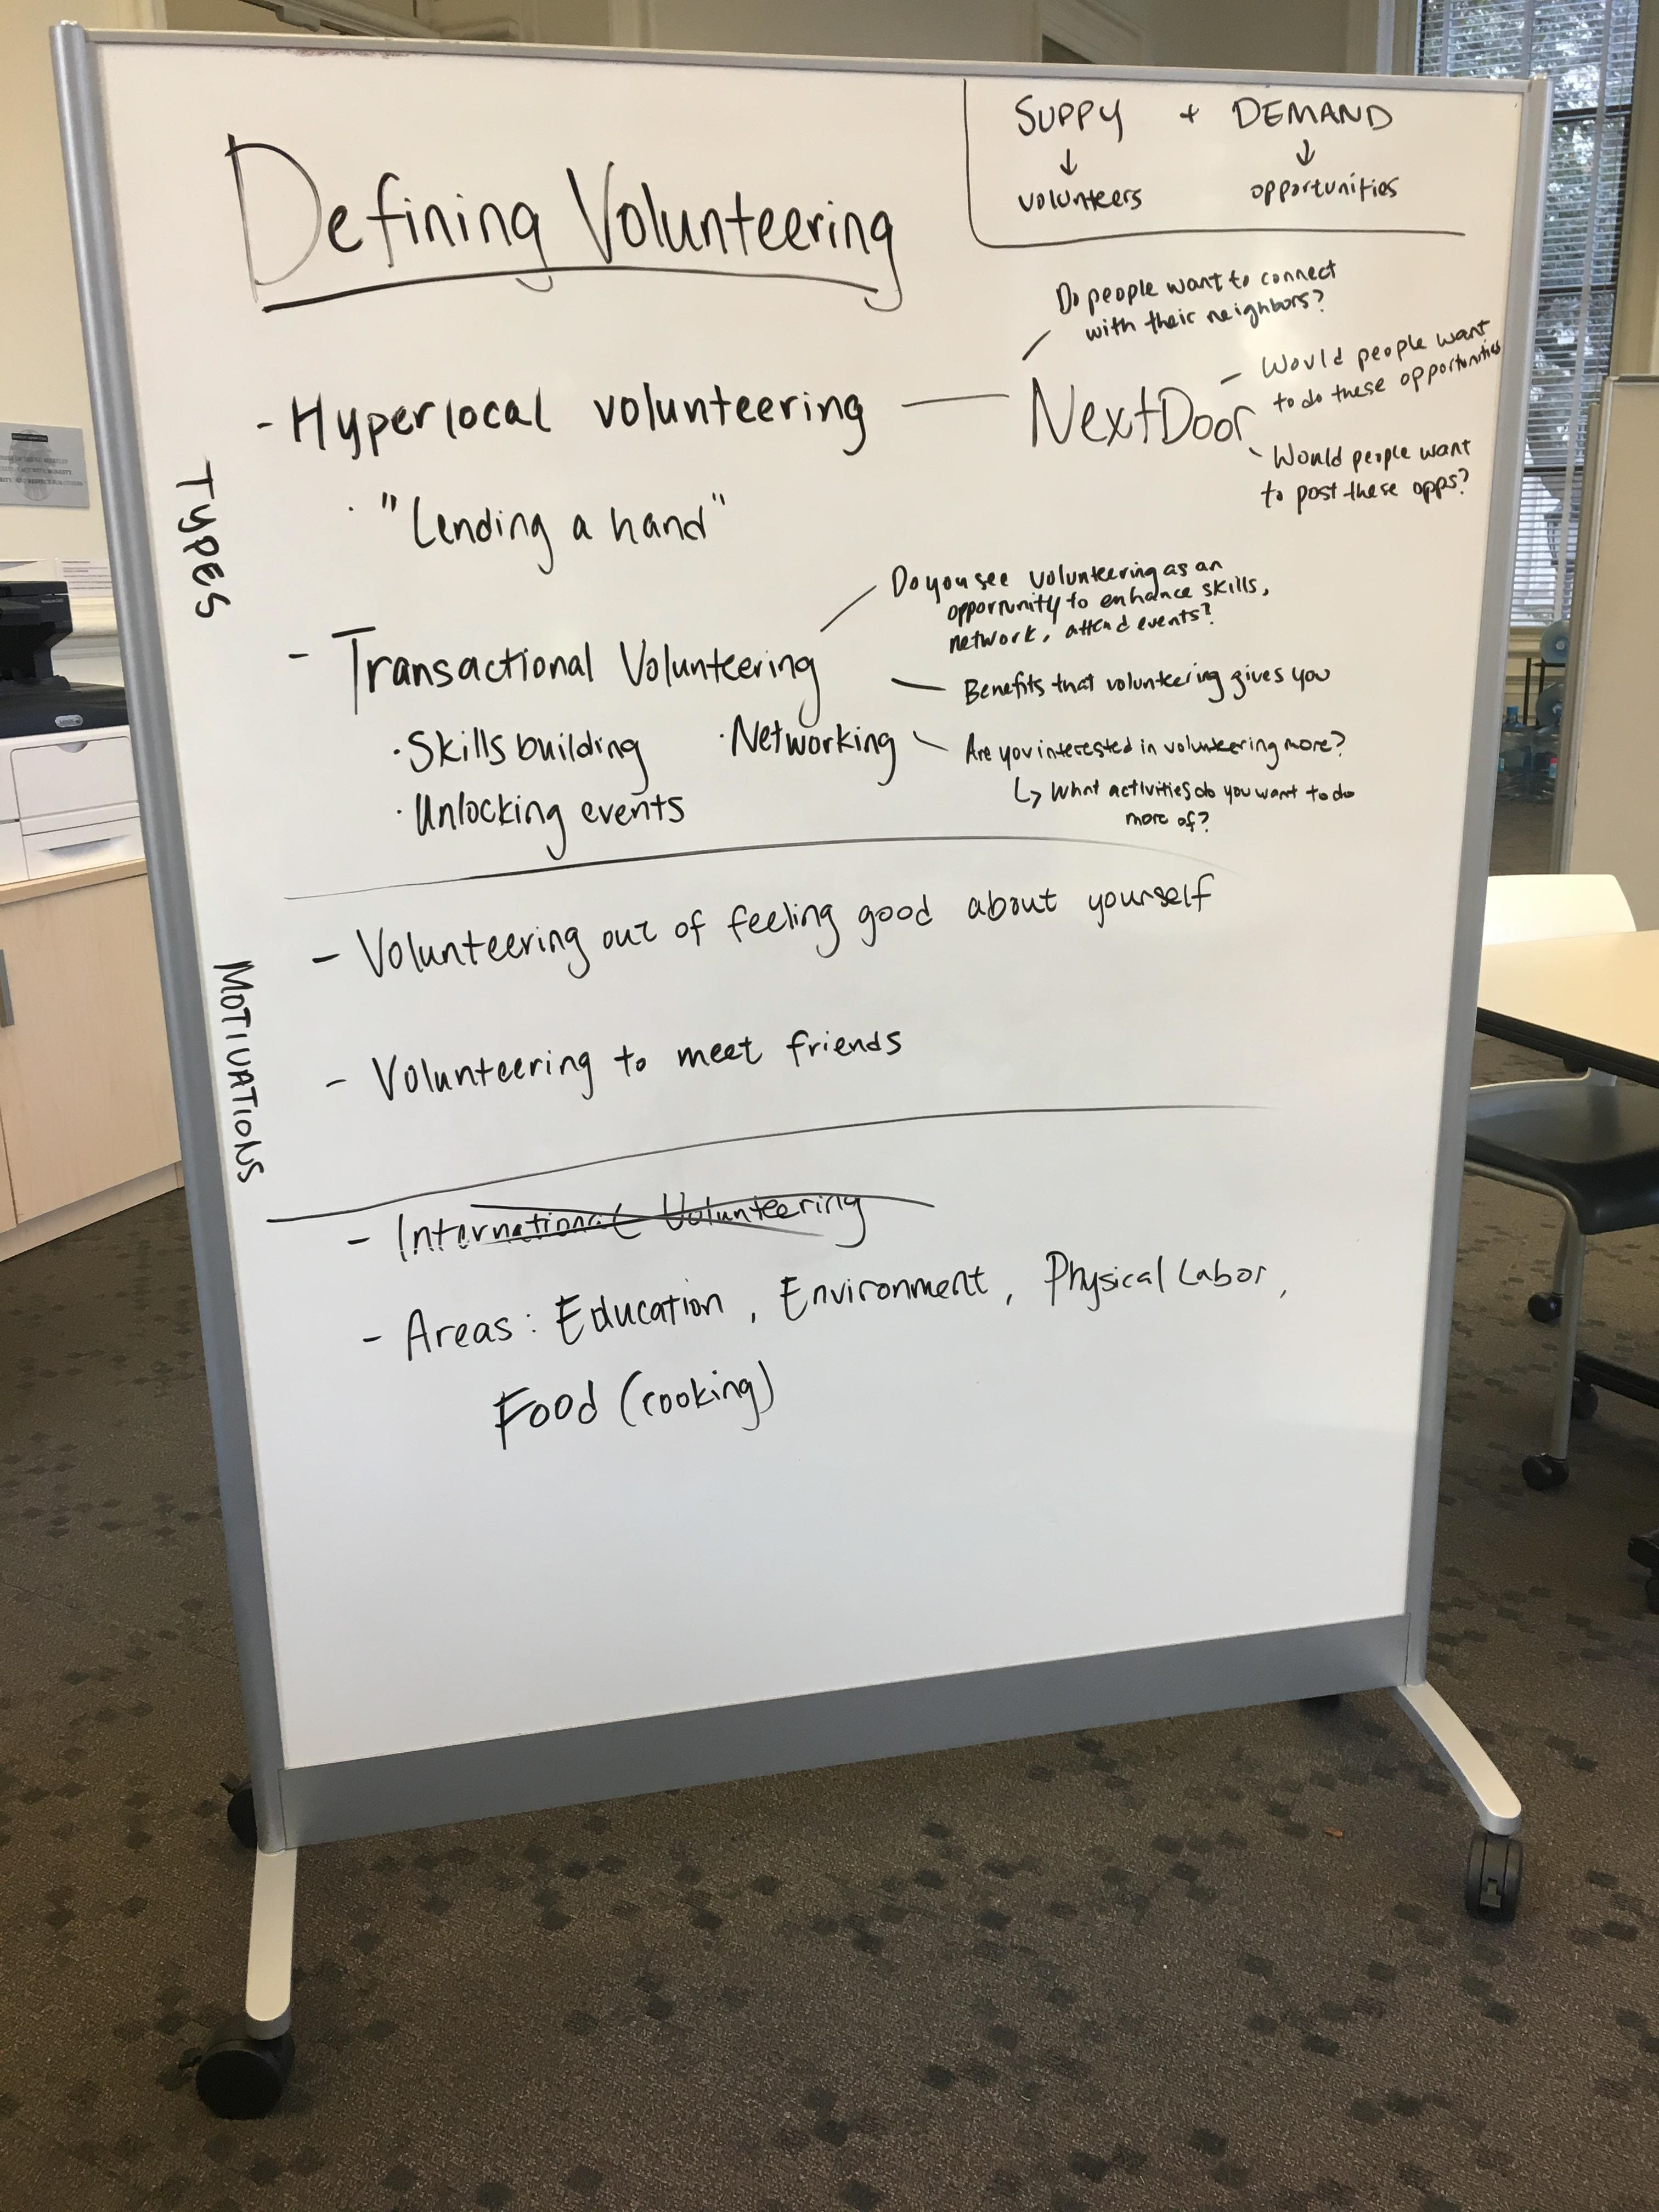 SUPPY + DEMAND
↓ ↓
volunteers opportunities
Defining Volunteering
Do people want to connect
with their neighbors?
TYPES
- Hyperlocal volunteering — NextDoor
- Would people want
to do these opportunities
- Would people want
to post these opps?
· "Lending a hand"
- Transactional Volunteering
Do you see volunteering as an
opportunity to enhance skills,
network, attend events?
- Benefits that volunteering gives you
· Skills building · Networking
- Are you interested in volunteering more?
↳ What activities do you want to do
more of?
· Unlocking events
MOTIVATIONS
- Volunteering out of feeling good about yourself
- Volunteering to meet friends
- International Volunteering
- Areas: Education, Environment, Physical Labor,
Food (cooking)